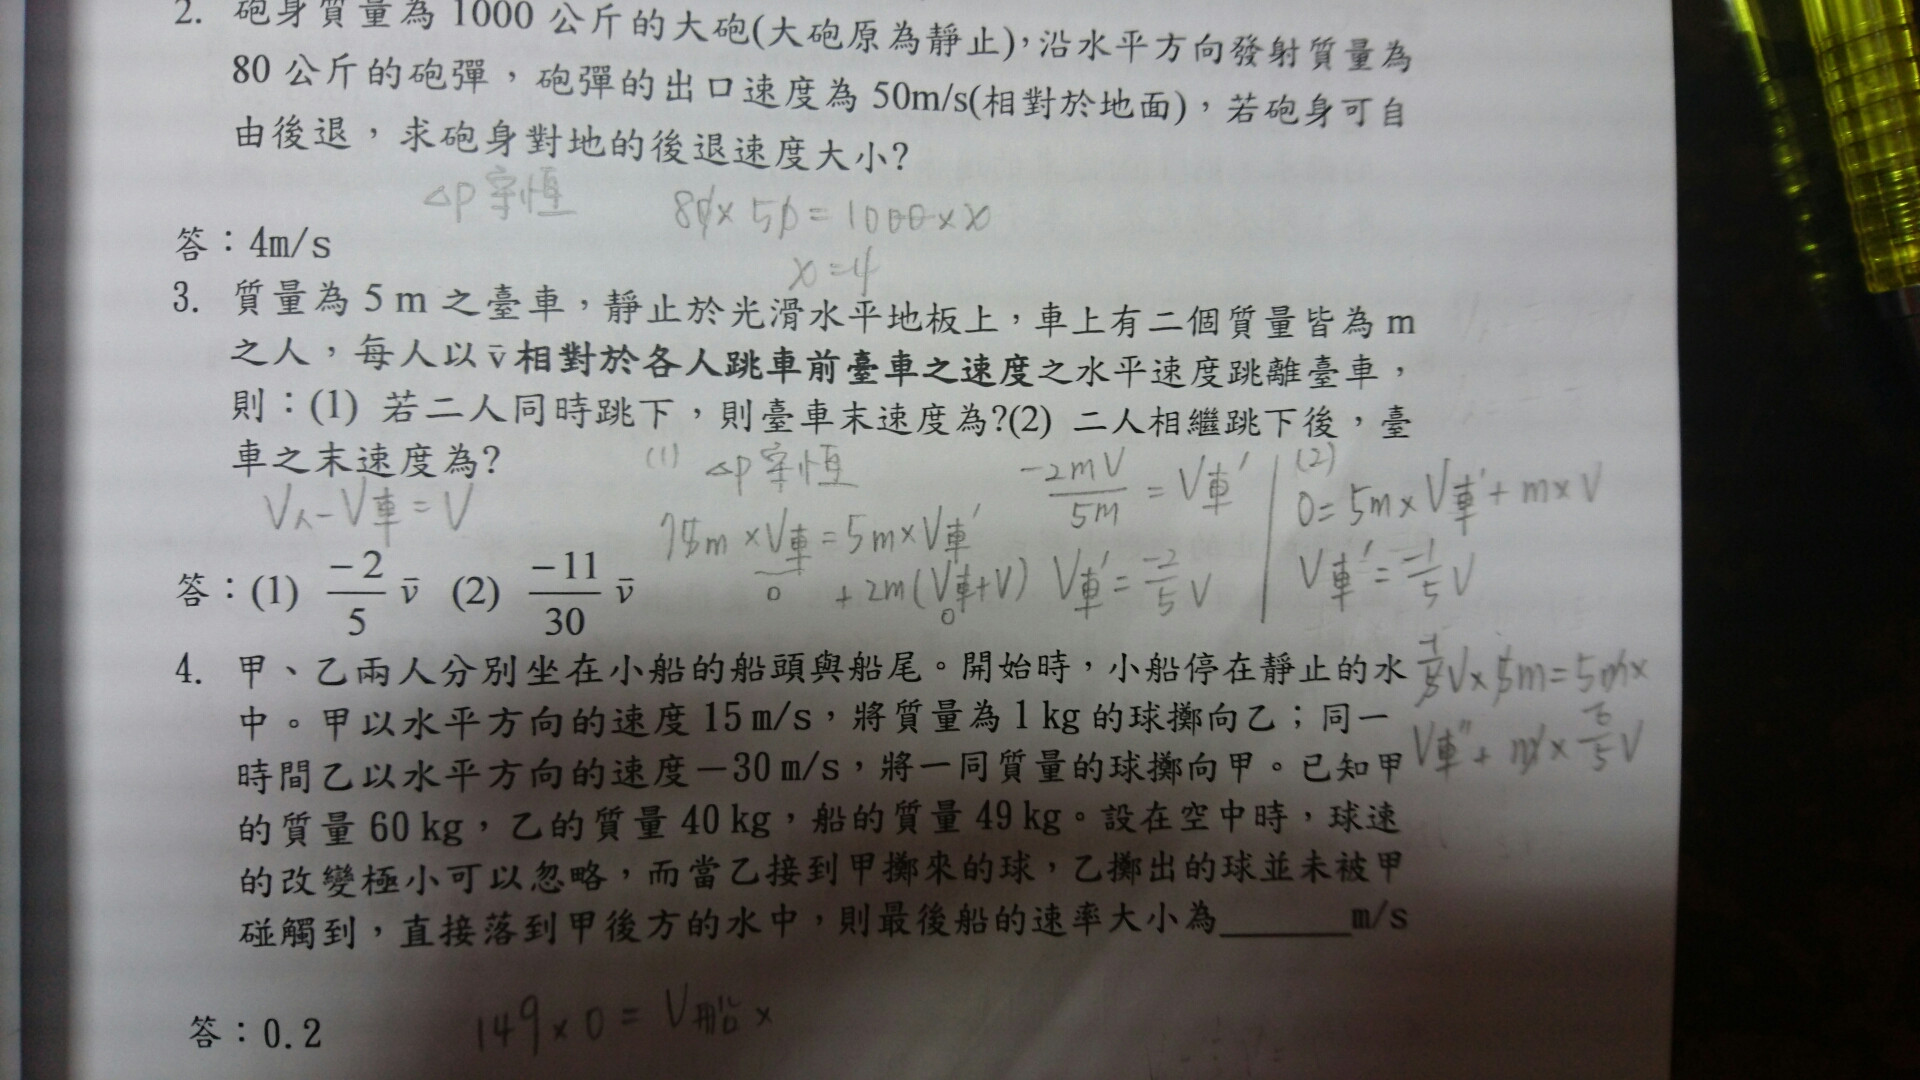 2. 砲身質量為 1000 公斤的大砲(大砲原為靜止)，沿水平方向發射質量為
80 公斤的砲彈，砲彈的出口速度為 50m/s(相對於地面)，若砲身可自
由後退，求砲身對地的後退速度大小?
△P守恆
80×50=1000×x
x=4
答：4m/s
3. 質量為 5 m 之臺車，靜止於光滑水平地板上，車上有二個質量皆為 m
之人，每人以 v̄ 相對於各人跳車前臺車之速度之水平速度跳離臺車，
則：(1) 若二人同時跳下，則臺車末速度為?(2) 二人相繼跳下後，臺
車之末速度為?
V人-V車=V
(1) △P守恆
m×V車=5m×V車'
0
+2m(V車+V)
0
-2mV/5m=V車'
V車'=-2/5 V
(2)
0=5m×V車'+m×V
V車'=-1/5 V
答：(1) -2/5 v̄ (2) -11/30 v̄
4. 甲、乙兩人分別坐在小船的船頭與船尾。開始時，小船停在靜止的水
中。甲以水平方向的速度 15 m/s，將質量為 1 kg 的球擲向乙；同一
時間乙以水平方向的速度－30 m/s，將一同質量的球擲向甲。已知甲
的質量 60 kg，乙的質量 40 kg，船的質量 49 kg。設在空中時，球速
的改變極小可以忽略，而當乙接到甲擲來的球，乙擲出的球並未被甲
碰觸到，直接落到甲後方的水中，則最後船的速率大小為______m/s
V×5m=5m×
V車"+m×6/5 V
答：0.2
149×0=V船×